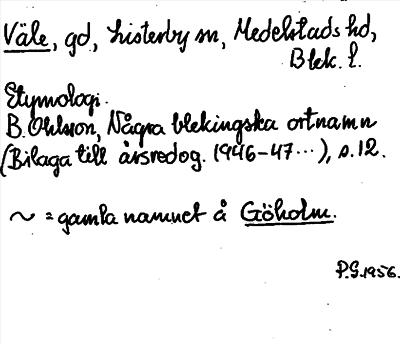 Väle, gd, Listerby sn, Medelstads hd,
Blek. l.
Etymologi.
B. Ohlsson, Några blekingska ortnamn
(Bilaga till årsredog. 1946-47...), s. 12.
~ = gamla namnet å Göholm.
P.G. 1956.